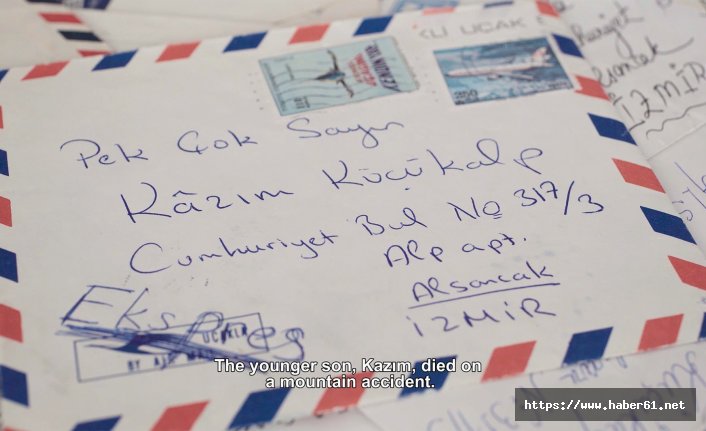 LI UÇAK
İZMİR
Pek Çok Sayın
Kâzım Küçükalp
Cumhuriyet Bul No 317/3
Alp apt.
Alsancak
İZMİR
Ekspres
UÇAKLA
BY AIR MA
The younger son, Kazım, died on
a mountain accident.
https://www.haber61.net